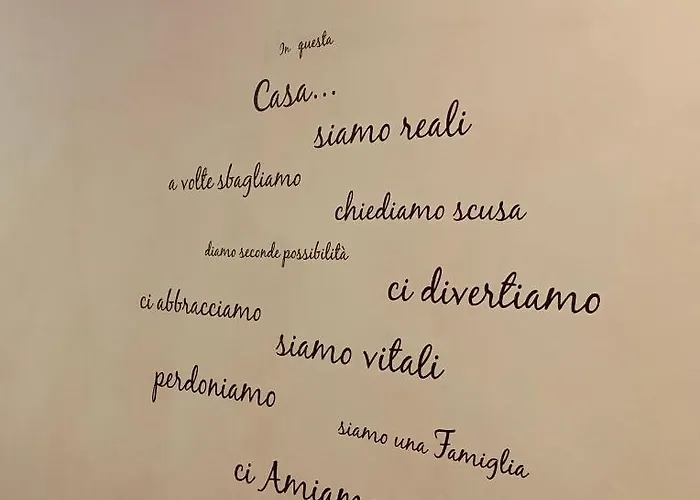 In questa
Casa...
siamo reali
a volte sbagliamo
chiediamo scusa
diamo seconde possibilità
ci divertiamo
ci abbracciamo
siamo vitali
perdoniamo
siamo una Famiglia
ci